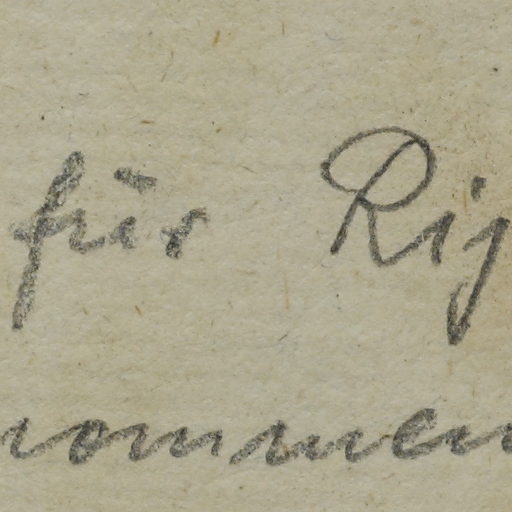 für Rij
nommen